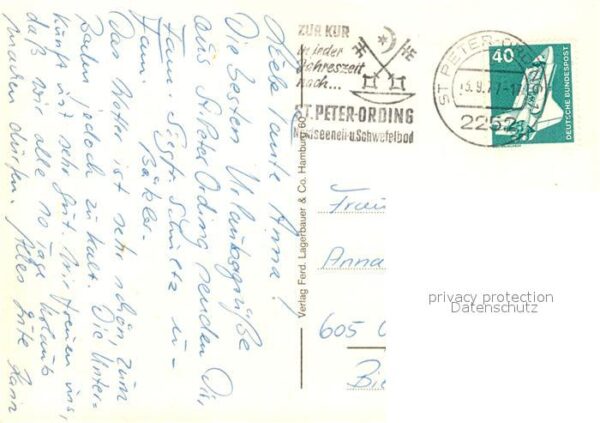 Liebe Tante Anna!
Die besten Urlaubsgrüße
aus St. Peter Ording senden Dir,
Fam. Siegfr. Schultz u.
Fam. Bäkler.
Das Wetter ist sehr schön, zum
Baden jedoch zu kalt. Die Unter-
kunft ist sehr gut. Wir freuen uns,
daß wir alle 10 Tage Urlaub
machen dürfen. Alles Gute
Verlag Ferd. Lagerbauer & Co. Hamburg 60
ZUR KUR
in jeder
Jahreszeit
nach...
ST. PETER-ORDING
Nordseeheil-u.Schwefelbad
ST PETER-ORDING
2252
40
DEUTSCHE BUNDESPOST
Anna
605 O
privacy protection
Datenschutz